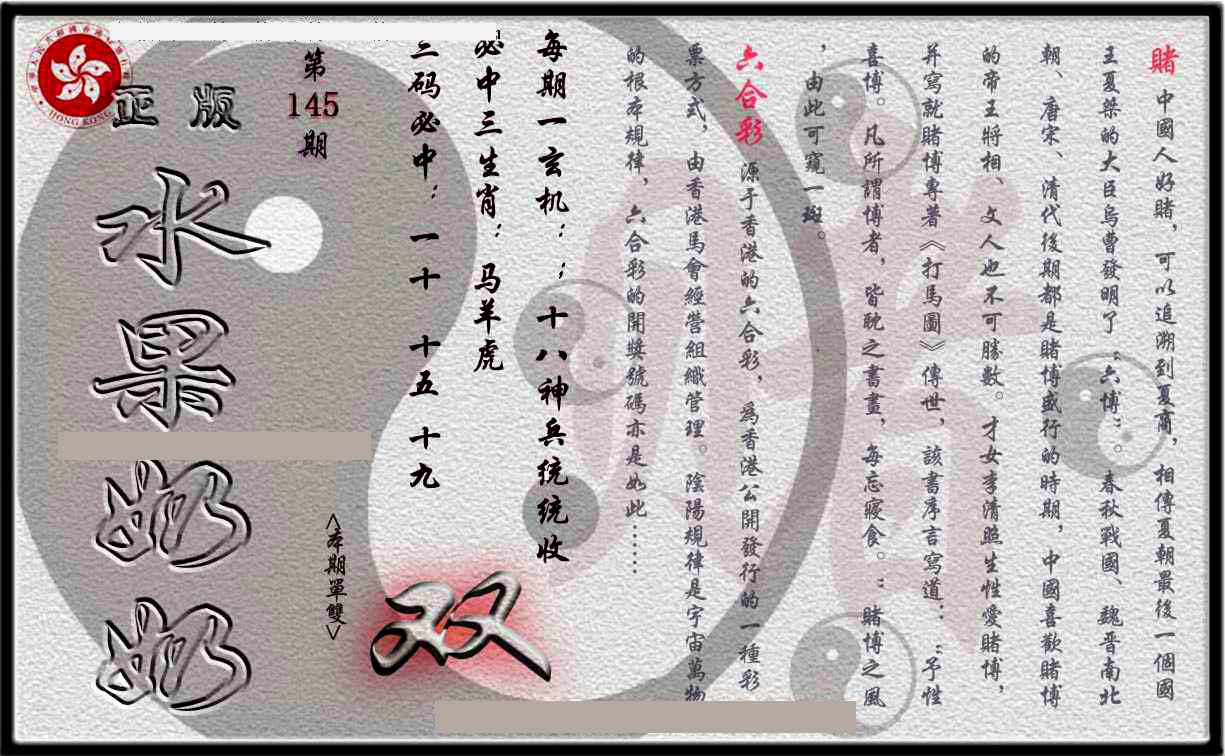 賭 中國人好賭，可以追溯到夏商，相傳夏朝最後一個國
王夏桀的大臣烏曹發明了“六博”。春秋戰國、魏晋南北
朝、唐宋、清代後期都是賭博盛行的時期，中國喜歡賭博
的帝王將相、文人也不可勝數。才女李清照生性愛賭博，
并寫就賭博專著《打馬圖》傳世，該書序言寫道：“予性
喜博。凡所謂博者，皆耽之書畫，每忘寢食。”賭博之風
，由此可窺一斑。
六合彩 源于香港的六合彩，為香港公開發行的一種彩
票方式，由香港馬會經營組織管理。陰陽規律是宇宙萬物
的根本規律，六合彩的開獎號碼亦是如此……
每期一玄机：：十八神兵统统收
必中三生肖：马羊虎
三码必中：一十 十五 十九
双
<本期單雙>
第
145
期
正版
水果奶奶
HONG KONG